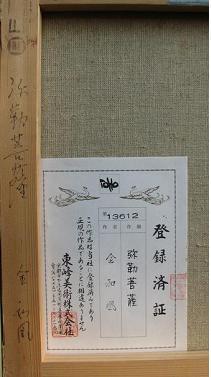 弥勒菩薩
金和風
登録済証
第13612
作題
弥勒菩薩
作者
金和風
この作品は当社に登録済みであり
正規の作品であることに相違ありません
東峰美術株式会社